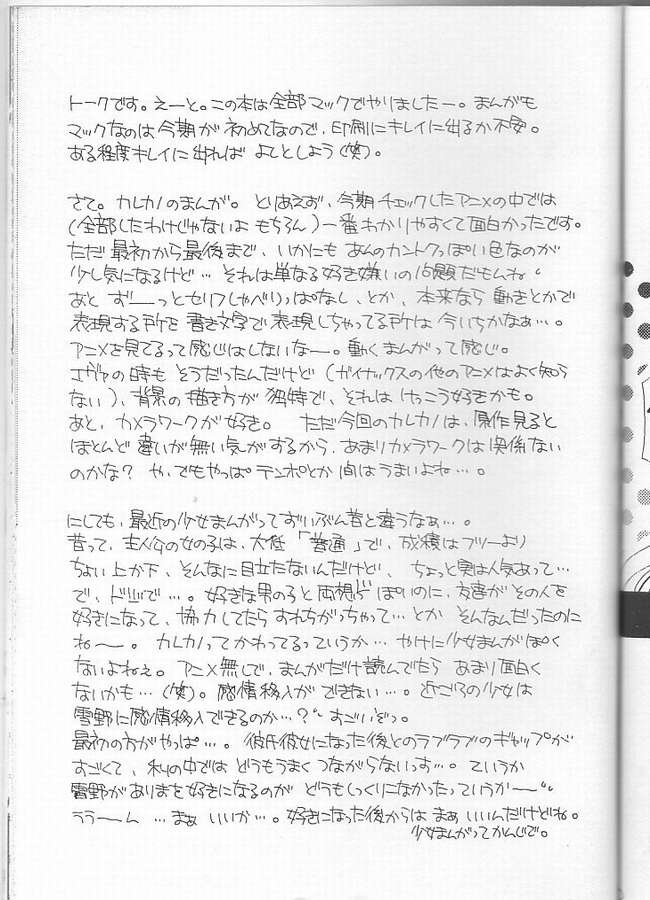 トークです。えーと。この本は全部マックでやりましたー。まんがも
マックなのは今期が初めてなので、印刷にキレイに出るか不安。
ある程度キレイに出れば よしとしよう(笑)。
さて。カレカノのまんが。とりあえず、今期チェックしたアニメの中では
(全部したわけじゃないよ もちろん)一番わかりやすくて面白かったです。
ただ最初から最後まで、いかにも あんのカントクっぽい色なのが
少し気になるけど… それは単なる好き嫌いの問題だもんね。
あと ずーーっとセリフしゃべりっぱなし、とか、本来なら動きとかで
表現する所を書き文字で表現しちゃってる所は今いちかなぁ…。
アニメを見てるって感じはしないなー。動くまんがって感じ。
エヴァの時も そうだったんだけど(ガイナックスの他のアニメはよく知ら
ない)、背景の描き方が独特で、それは けっこう好きかも。
あと、カメラワークが好き。 ただ今回のカレカノは、原作見ると
ほとんど違いが無い気がするから、あまりカメラワークは関係ない
のかな? や、でもやっぱテンポとか間はうまいよね…。
にしても、最近の少女まんがってずいぶん昔と違うなぁ…。
昔って、主人公の女の子は、大低「普通」で、成積はフツーより
ちょい上か下、そんなに目立たないんだけど、ちょっと実は人気あって…
で、ドジで…。好きな男の子と両想い ぽいのに、友達がその人を
好きになって、協力してたら すれちがっちゃって…とか そんなんだったのに
ねー。カレカノってかわってるっていうか… やけに少女まんがぽく
ないよねぇ。アニメ無しで、まんがだけ読んでたら あまり面白く
ないかも…(笑)。感情移入が できない…。近ごろの少女は
雪野に感情移入できるのか…?" すごいぞっ。
最初の方がやっぱ…。彼氏彼女になった後とのラブラブのギャップが
すごくて、私の中では どうもうまく つながらないっす…。ていうか
雪野がありまを好きになるのが どうもしっくりこなかったっていうかー"
ううーん …まぁ いいか…。好きになった後からは まぁ いいんだけどね。
少女まんがってかんじで。